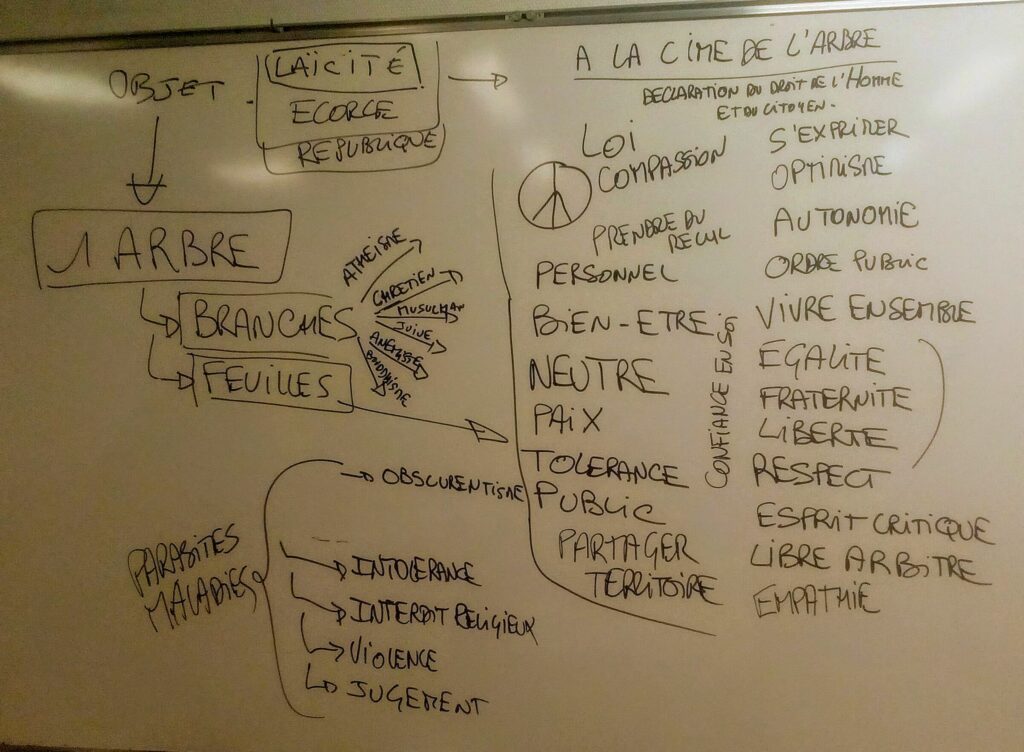 OBJET
LAÏCITÉ
ECORCE
REPUBLIQUE
1 ARBRE
BRANCHES
FEUILLES
ATHEISME
CHRETIEN
MUSULMAN
JUIVE
BOUDDHISME
PARASITES
MALADIES
OBSCURENTISME
INTOLERANCE
INTERDIT RELIGIEUX
VIOLENCE
JUGEMENT
A LA CIME DE L'ARBRE
DECLARATION DU DROIT DE L'HOMME
ET DU CITOYEN.
LOI
COMPASSION
PRENDRE DU
RECUL
PERSONNEL
BIEN-ETRE
NEUTRE
PAIX
TOLERANCE
PUBLIC
PARTAGER
TERRITOIRE
CONFIANCE EN SOI
S'EXPRIMER
OPTIMISME
AUTONOMIE
ORDRE PUBLIC
VIVRE ENSEMBLE
EGALITE
FRATERNITE
LIBERTE
RESPECT
ESPRIT CRITIQUE
LIBRE ARBITRE
EMPATHIE